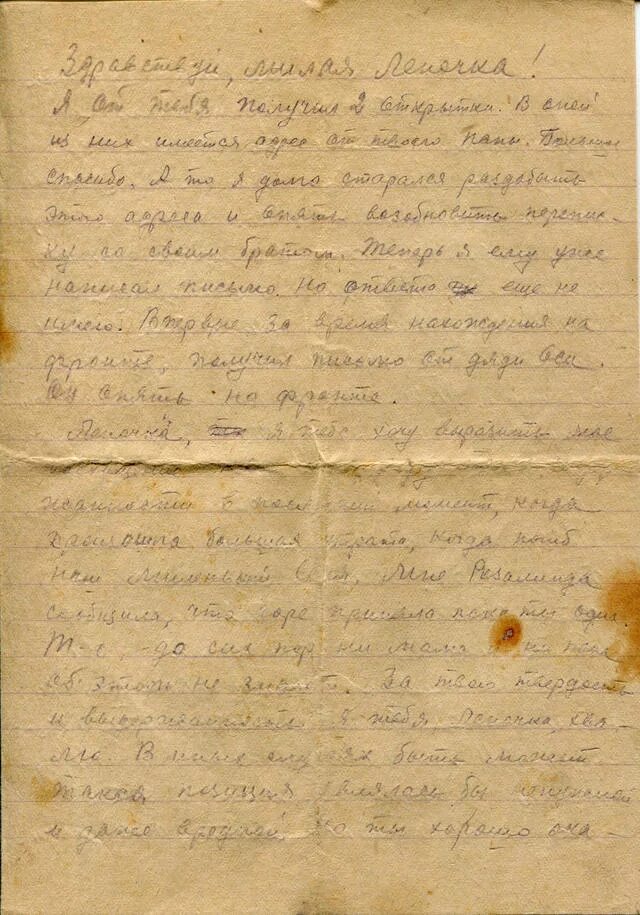 Здравствуй, милая Леночка!
Я от тебя получил 2 открытки. В одной
из них имеется адрес от твоего папы. Большое
спасибо. А то я долго старался раздобыть
этого адреса и опять возобновить перепис-
ку со своим братом. Теперь я ему уже
написал письмо. Но ответа еще не
имею. Впервые за время нахождения на
фронте, получил письмо от дяди Оси.
Он опять на фронте.
Леночка, я тебе хочу выразить мое
в последний момент, когда
большая утрата, когда погиб
наш миленький Мне Розалинда
сообщила, что горе приняла пока ты одна.
Т-е, до сих пор ни мама и ни папа
об этом не знают. За твою твердость
и выдержанность я тебя, Леночка, хва-
лю. В иных случаях быть может
такая позиция являлась бы
и даже вредной. Но ты хорошо